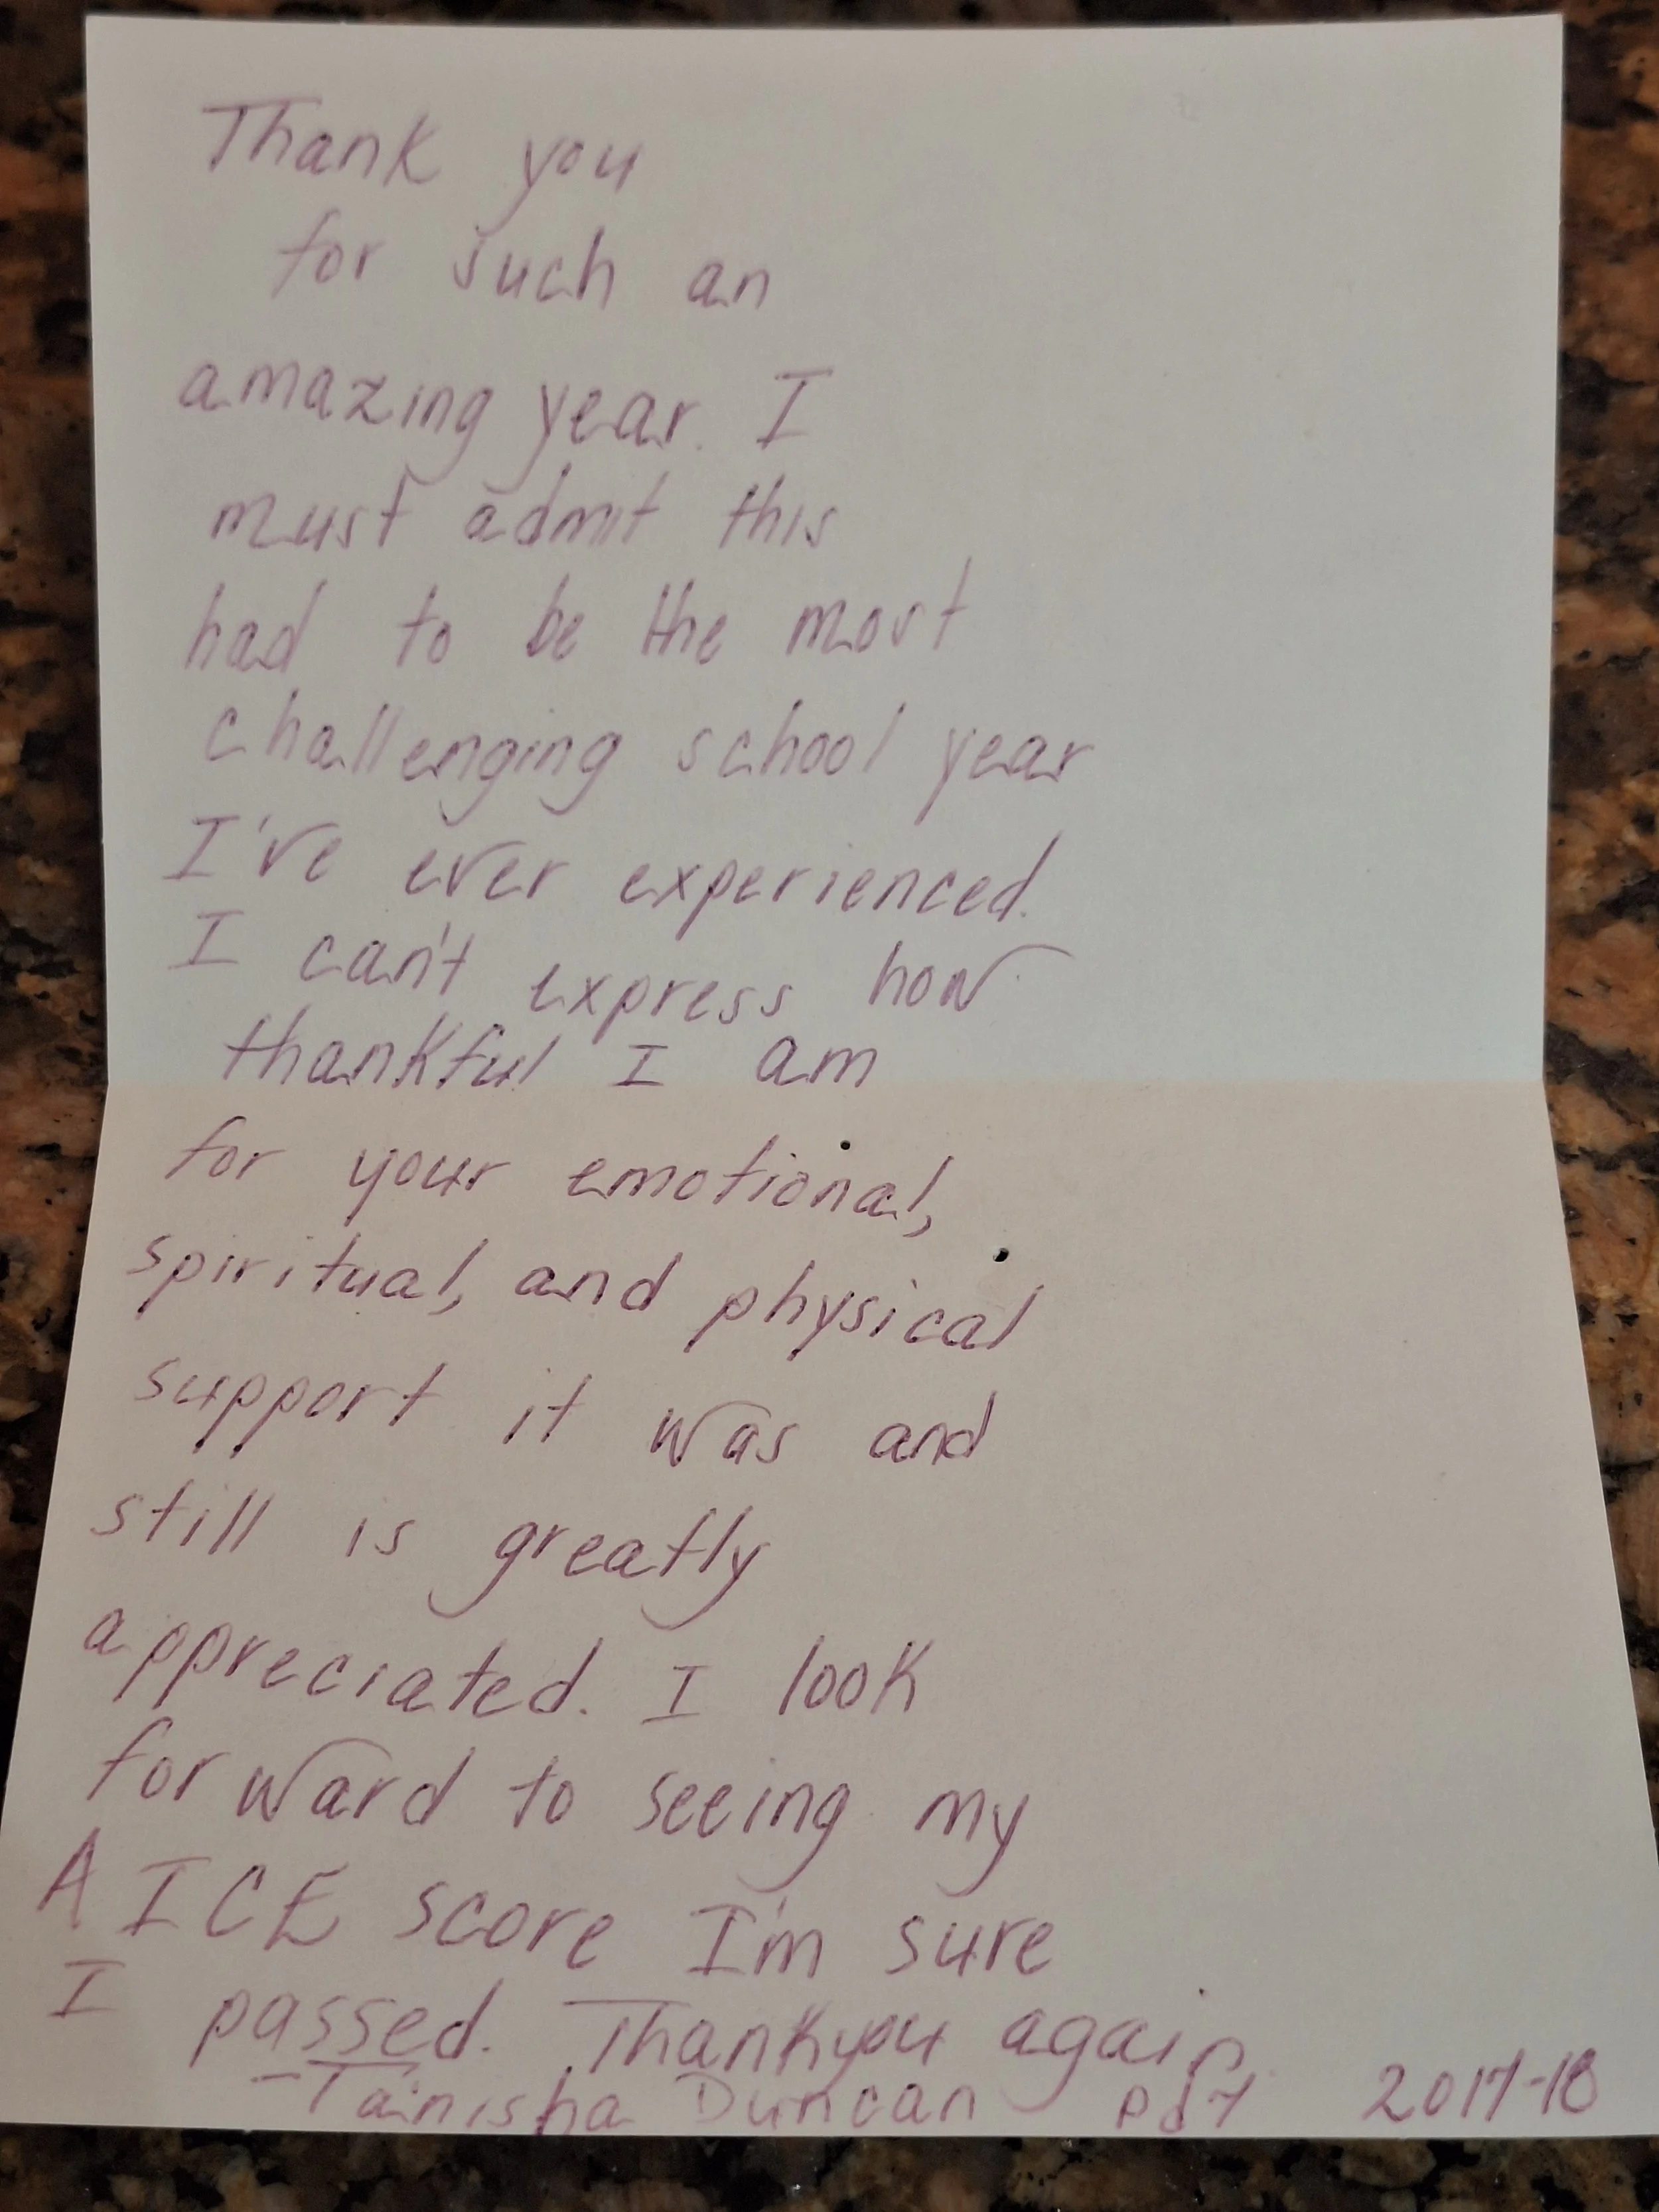 Thank you
for such an
amazing year. I
must admit this
had to be the most
challenging school year
I've ever experienced.
I can't express how
thankful I am
for your emotional,
spiritual, and physical
support it was and
still is greatly
appreciated. I look
forward to seeing my
AICE score I'm sure
I passed. Thankyou again
-Tainisha Duncan pd7 2017-18